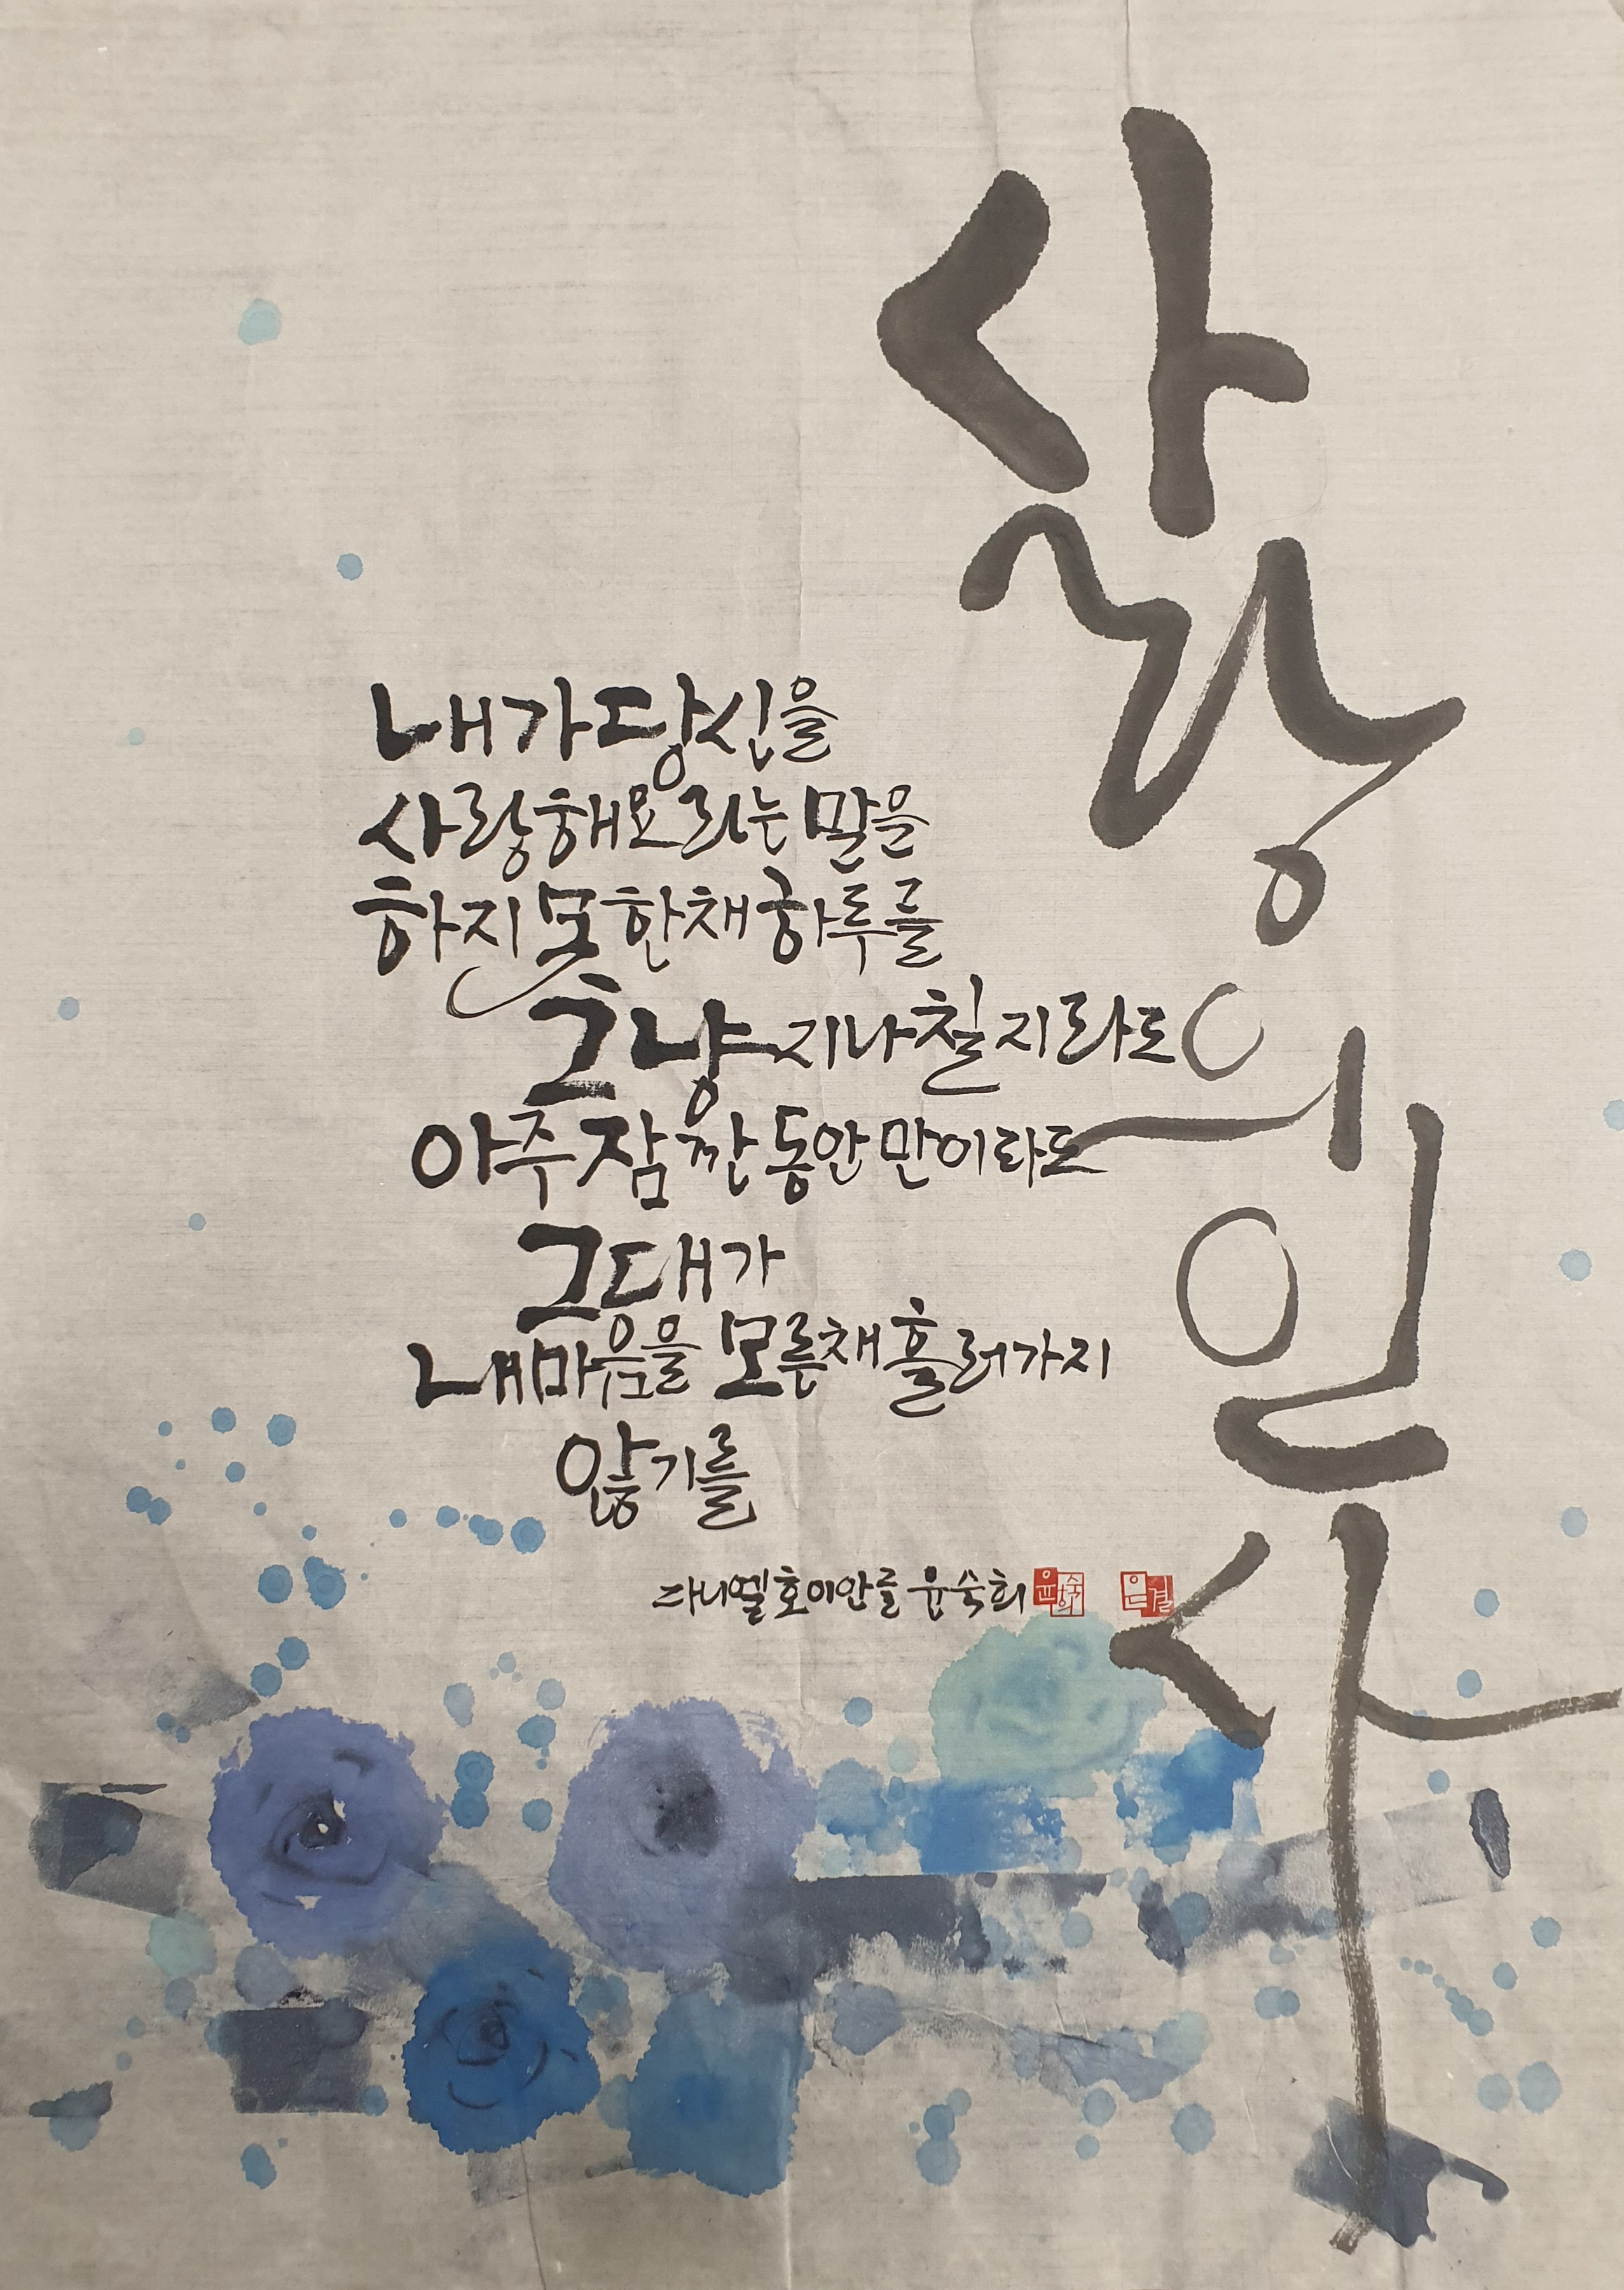 사랑의 인사
내가 당신을
사랑해요 라는 말을
하지 못한채 하루를
그냥 지나칠지라도
아주 잠깐 동안만이라도
그대가
내마음을 모른채 흘러가지
않기를
다니엘 호이안글 윤숙희 윤숙희